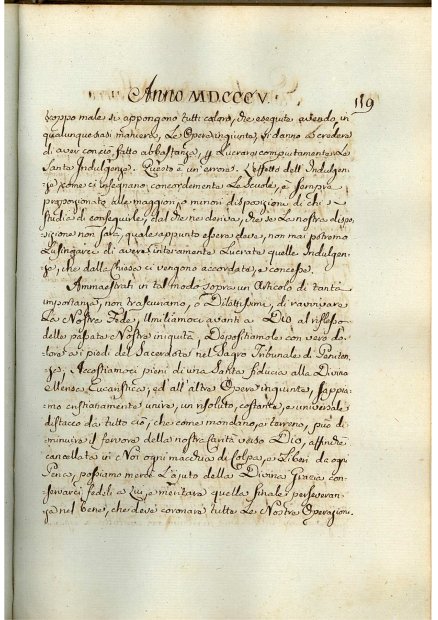 Anno MDCCCV. 119
troppo male si appongono tutti coloro, che eseguite avendo in
qualunque siasi maniera, Le Opere ingiunte, si danno a credere
di aver con ciò fatto abbastanza, p Lucrare compiutamente La
Santa Indulgenza. Questo è un' errore. L'effetto dell' Indulgen-
ze, come ci insegnano concordemente Le Scuole, è sempre
proporzionato alle maggiori, o minori disposizioni di chi
studia di conseguirle, dal che ne deriva, che se La nostra dispo-
sizione non sarà, quale appunto esser deve, non mai potremo
Lusingarci di avere interamente Lucrate quelle Indulgen-
ze, che dalla Chiesa ci vengono accordate, e concesse.
Ammaestrati in tal modo sopra un Articolo di tanta
importanza, non trascuriamo, o Dilettissimi, di ravvivare
La Nostra Fede, Umiliamoci avanti a Dio al riflesso
delle passate Nostre iniquità, Depositiamole con vero do-
lore a' piedi del Sacerdote nel Sagro Tribunale di Peniten-
za, Accostiamoci pieni di una Santa fiducia alla Divina
Mensa Eucaristica, ed all' altre Opere ingiunte, sappia-
mo cristianamente unire, un risoluto, costante, e universale
distacco da tutto ciò, che come mondano, e terreno, può di-
minuire il fervore della nostra carità verso Dio, affinchè
cancellata in Noi ogni macchia di Colpa, e Liberi da ogni
Pena, possiamo mercè L'ajuto della Divina Grazia con-
servarci fedeli a Lui, e meritare quella finale perseveran-
za nel bene, che deve coronare tutte Le Nostre Operazioni.